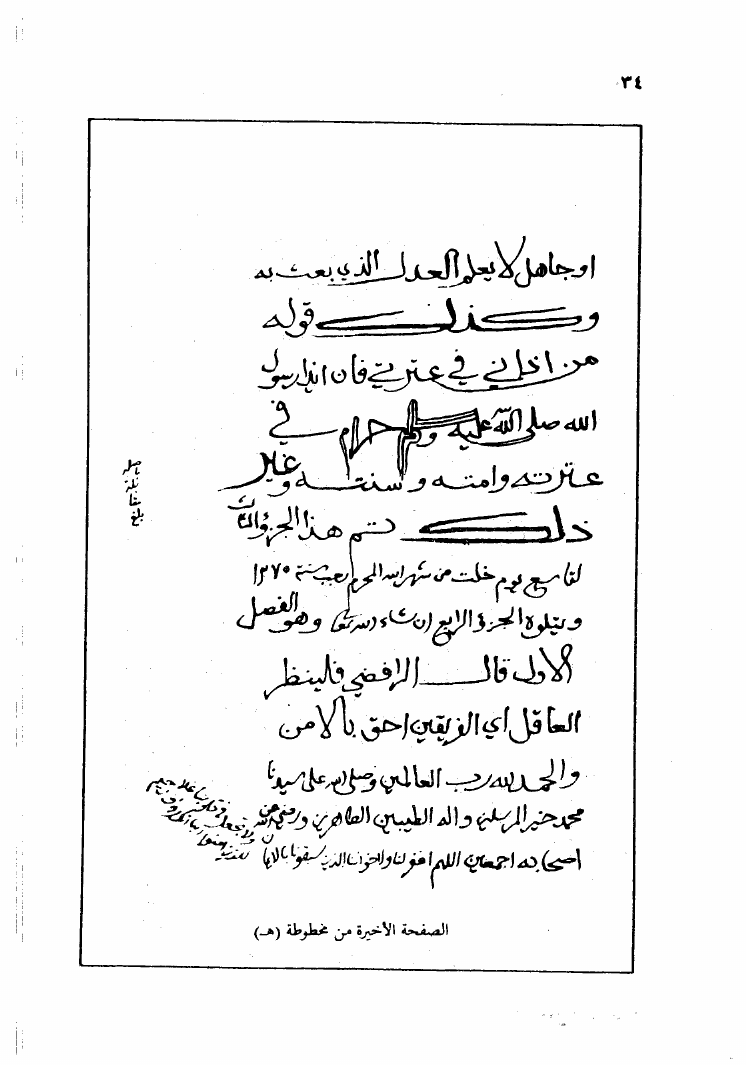 ٣٤
او جاهل لا يعلم العدل الذي بعث به
وكذلك قوله
من اذاني في عترتي فان اذا رسول
الله صلى الله عليه وسلم حرام في
عترته وامته وسنته وغير
ذلك تم هذا الجزؤ الثالث
يوم خلت من شهر الله المحرم سنة ١٢٧٥
ويتلوه الجزؤ الرابع ان شاء الله تعا وهو الفصل
الاول قال الرافضي فلينظر
العاقل اي الفريقين احق بالامن
والحمد لله رب العالمين وصلى الله على سيدنا
محمد خير المرسلين واله الطيبين الطاهرين ورضي الله عن
اصحابه اجمعين اللهم اغفر لنا ولاخواننا الذين سبقونا بالايمان
ولا تجعل في قلوبنا غلا
للذين امنوا ربنا انك رؤف رحيم
بلغ
مقا
بلة
باصله
الصفحة الأخيرة من مخطوطة (هـ)